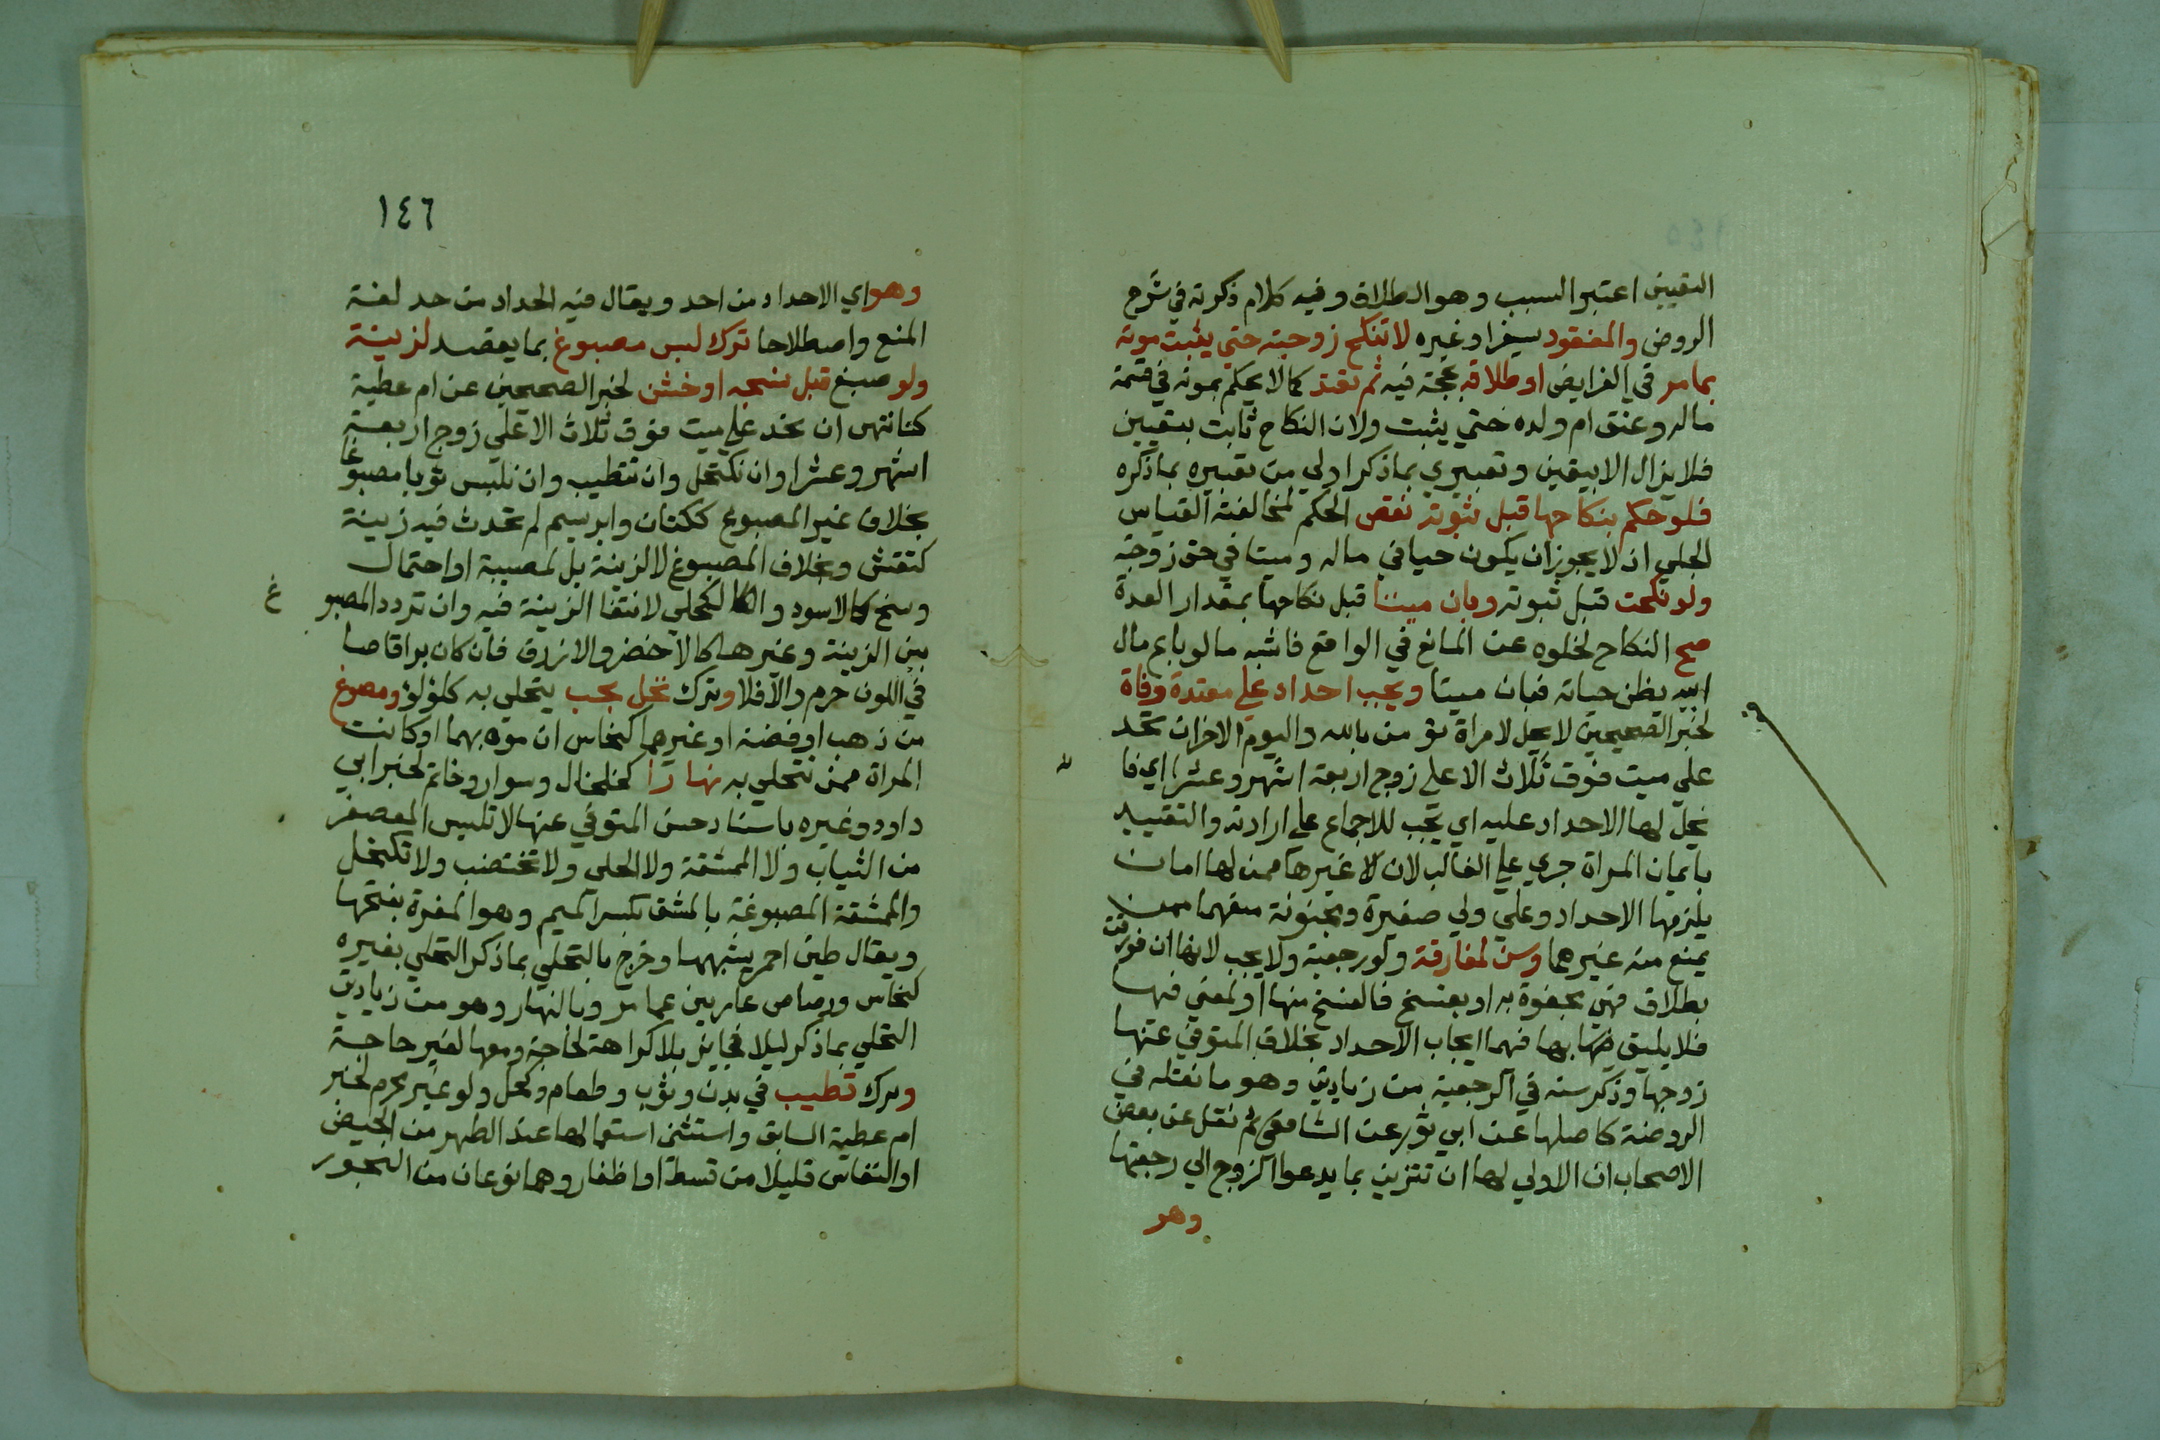 اليقين اعتبر السبب وهو الطلاق وفيه كلام ذكرته في شرح
الروض والمفقود بسفر او غيره لا تنكح زوجته حتي يثبت موته
بما مر في الفرايض او طلاقه بحجة فيه ثم تعتد كما لا يحكم بموته في قسمة
ماله وعتق ام ولده حتي يثبت ولان النكاح ثابت بيقين
فلا يزال الا بيقين وتعبيري بما ذكر اولي من تعبيره بما ذكره
فلو حكم بنكاحها قبل ثبوته نقض الحكم لمخالفته القياس
الجلي اذ لا يجوز ان يكون حيا في ماله وميتا في حق زوجته
ولو نكحت قبل ثبوته وبان ميتا قبل نكاحها بمقدار العدة
صح النكاح لخلوه عن المانع في الواقع فاشبه ما لو باع مال
ابيه يظن حياته فبان ميتا ويجب احداد علي معتدة وفاة
لخبر الصحيحين لا يحل لامراة تؤمن بالله واليوم الاخر ان تحد
علي ميت فوق ثلاث الا علي زوج اربعة اشهر وعشرا اي فا
يحل لها الاحداد عليه اي يجب للاجماع علي ارادته والتقييد
بايمان المراة جري علي الغالب لان غيرها ممن لها امان
يلزمها الاحداد وعلي ولي صغيرة ومجنونة منعهما ممن
يمنع منه غيرهما وسن لمفارقة ولو رجعية ولا يجب لانها ان فورقت
بطلاق فهي مجفوة به او بفسخ فالفسخ منها او لمعني فيها
فلا يليق بها فيهما ايجاب الاحداد بخلاف المتوفي عنها
زوجها وذكر سنه في الرجعية من زيادتي وهو ما نقله في
الروضة كاصلها عن ابي ثور عن الشافعي ثم نقل عن بعض
الاصحاب ان الاولي لها ان تتزين بما يدعوا الزوج الي رجعتها
وهو
١٤٦
وهو اي الاحداد من احد ويقال فيه الحداد من حد لغة
المنع واصطلاحا ترك لبس مصبوغ بما يقصد لزينة
ولو صبغ قبل نسجه او خشن لخبر الصحيحين عن ام عطية
كنا ننهي ان نحد علي ميت فوق ثلاث الا علي زوج اربعة
اشهر وعشرا وان نكتحل وان نتطيب وان نلبس ثوبا مصبوغا
بخلاف غير المصبوغ ككتان وابريسم لم تحدث فيه زينة
كنقش وبخلاف المصبوغ لا لزينة بل لمصيبة او احتمال
وسخ كالاسود والكحلي لانتفا الزينة فيه وان تردد المصبو غ
بين الزينة وغيرها كالاخضر والازرق فان كان براقا صا
في اللون حرم والا فلا وترك تحل بحب يتحلي به كلؤلؤ ومصوغ
من ذهب او فضة او غيرهما كنحاس ان موه بهما او كانت
المراة ممن تتحلي به نهارا كخلخال وسوار وخاتم لخبر ابي
داود وغيره باسناد حسن المتوفي عنها لا تلبس المعصفر
من الثياب ولا الممشقة ولا الحلي ولا تختضب ولا تكتحل
والممشقة المصبوغة بالمشق بكسر الميم وهو المغرة بفتحها
ويقال طين احمر يشبهها وخرج بالتحلي بما ذكر التحلي بغيره
كنحاس ورصاص عاريين عما مر وبالنهار وهو من زيادتي
التحلي بما ذكر ليلا فجايز بلا كراهة لحاجة ومعها لغير حاجة
وترك تطيب في بدن وثوب وطعام وكحل ولو غير محرم لخبر
ام عطية السابق واستثني استعمالها عند الطهر من الحيض
او النفاس قليلا من قسط او اظفار وهما نوعان من البخور